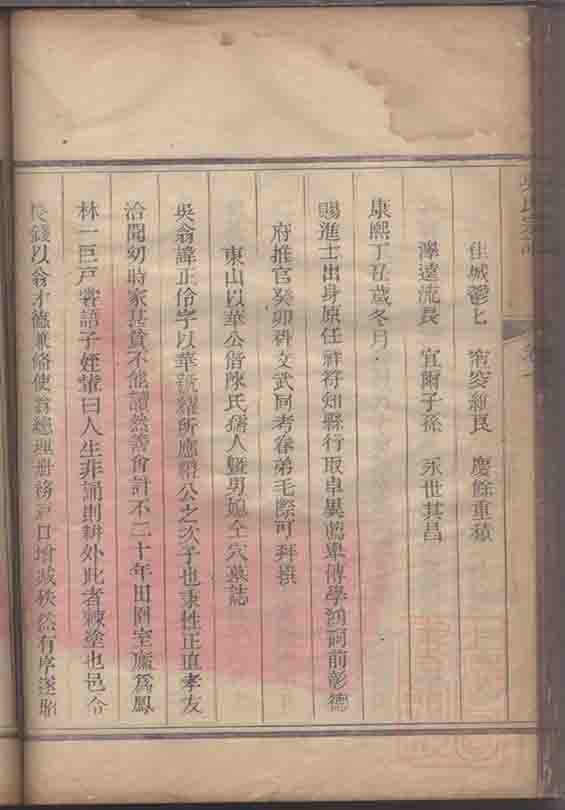 佳城鬱匕 窀穸維良 慶餘重積
澤遠流長 宜爾子孫 永世其昌
康熙丁丑歲冬月
賜進士出身原任祥符知縣行取卓異薦舉博學鴻詞前彰德
府推官癸卯科文武同考眷弟毛際可拜撰
東山以華公偕陳氏孺人暨男媳全穴墓誌
吳翁諱正佁字以華號耀所應祖公之次子也秉性正直孝友
洽聞幼時家甚貧不能讀然善會計不二十年田園室廬為鳳
林一巨戶嘗語子姪輩曰人生非誦則耕外此者棘塗也邑令
錢以翁才德兼絡使翁總理冊務戶口增減秩然有序遂